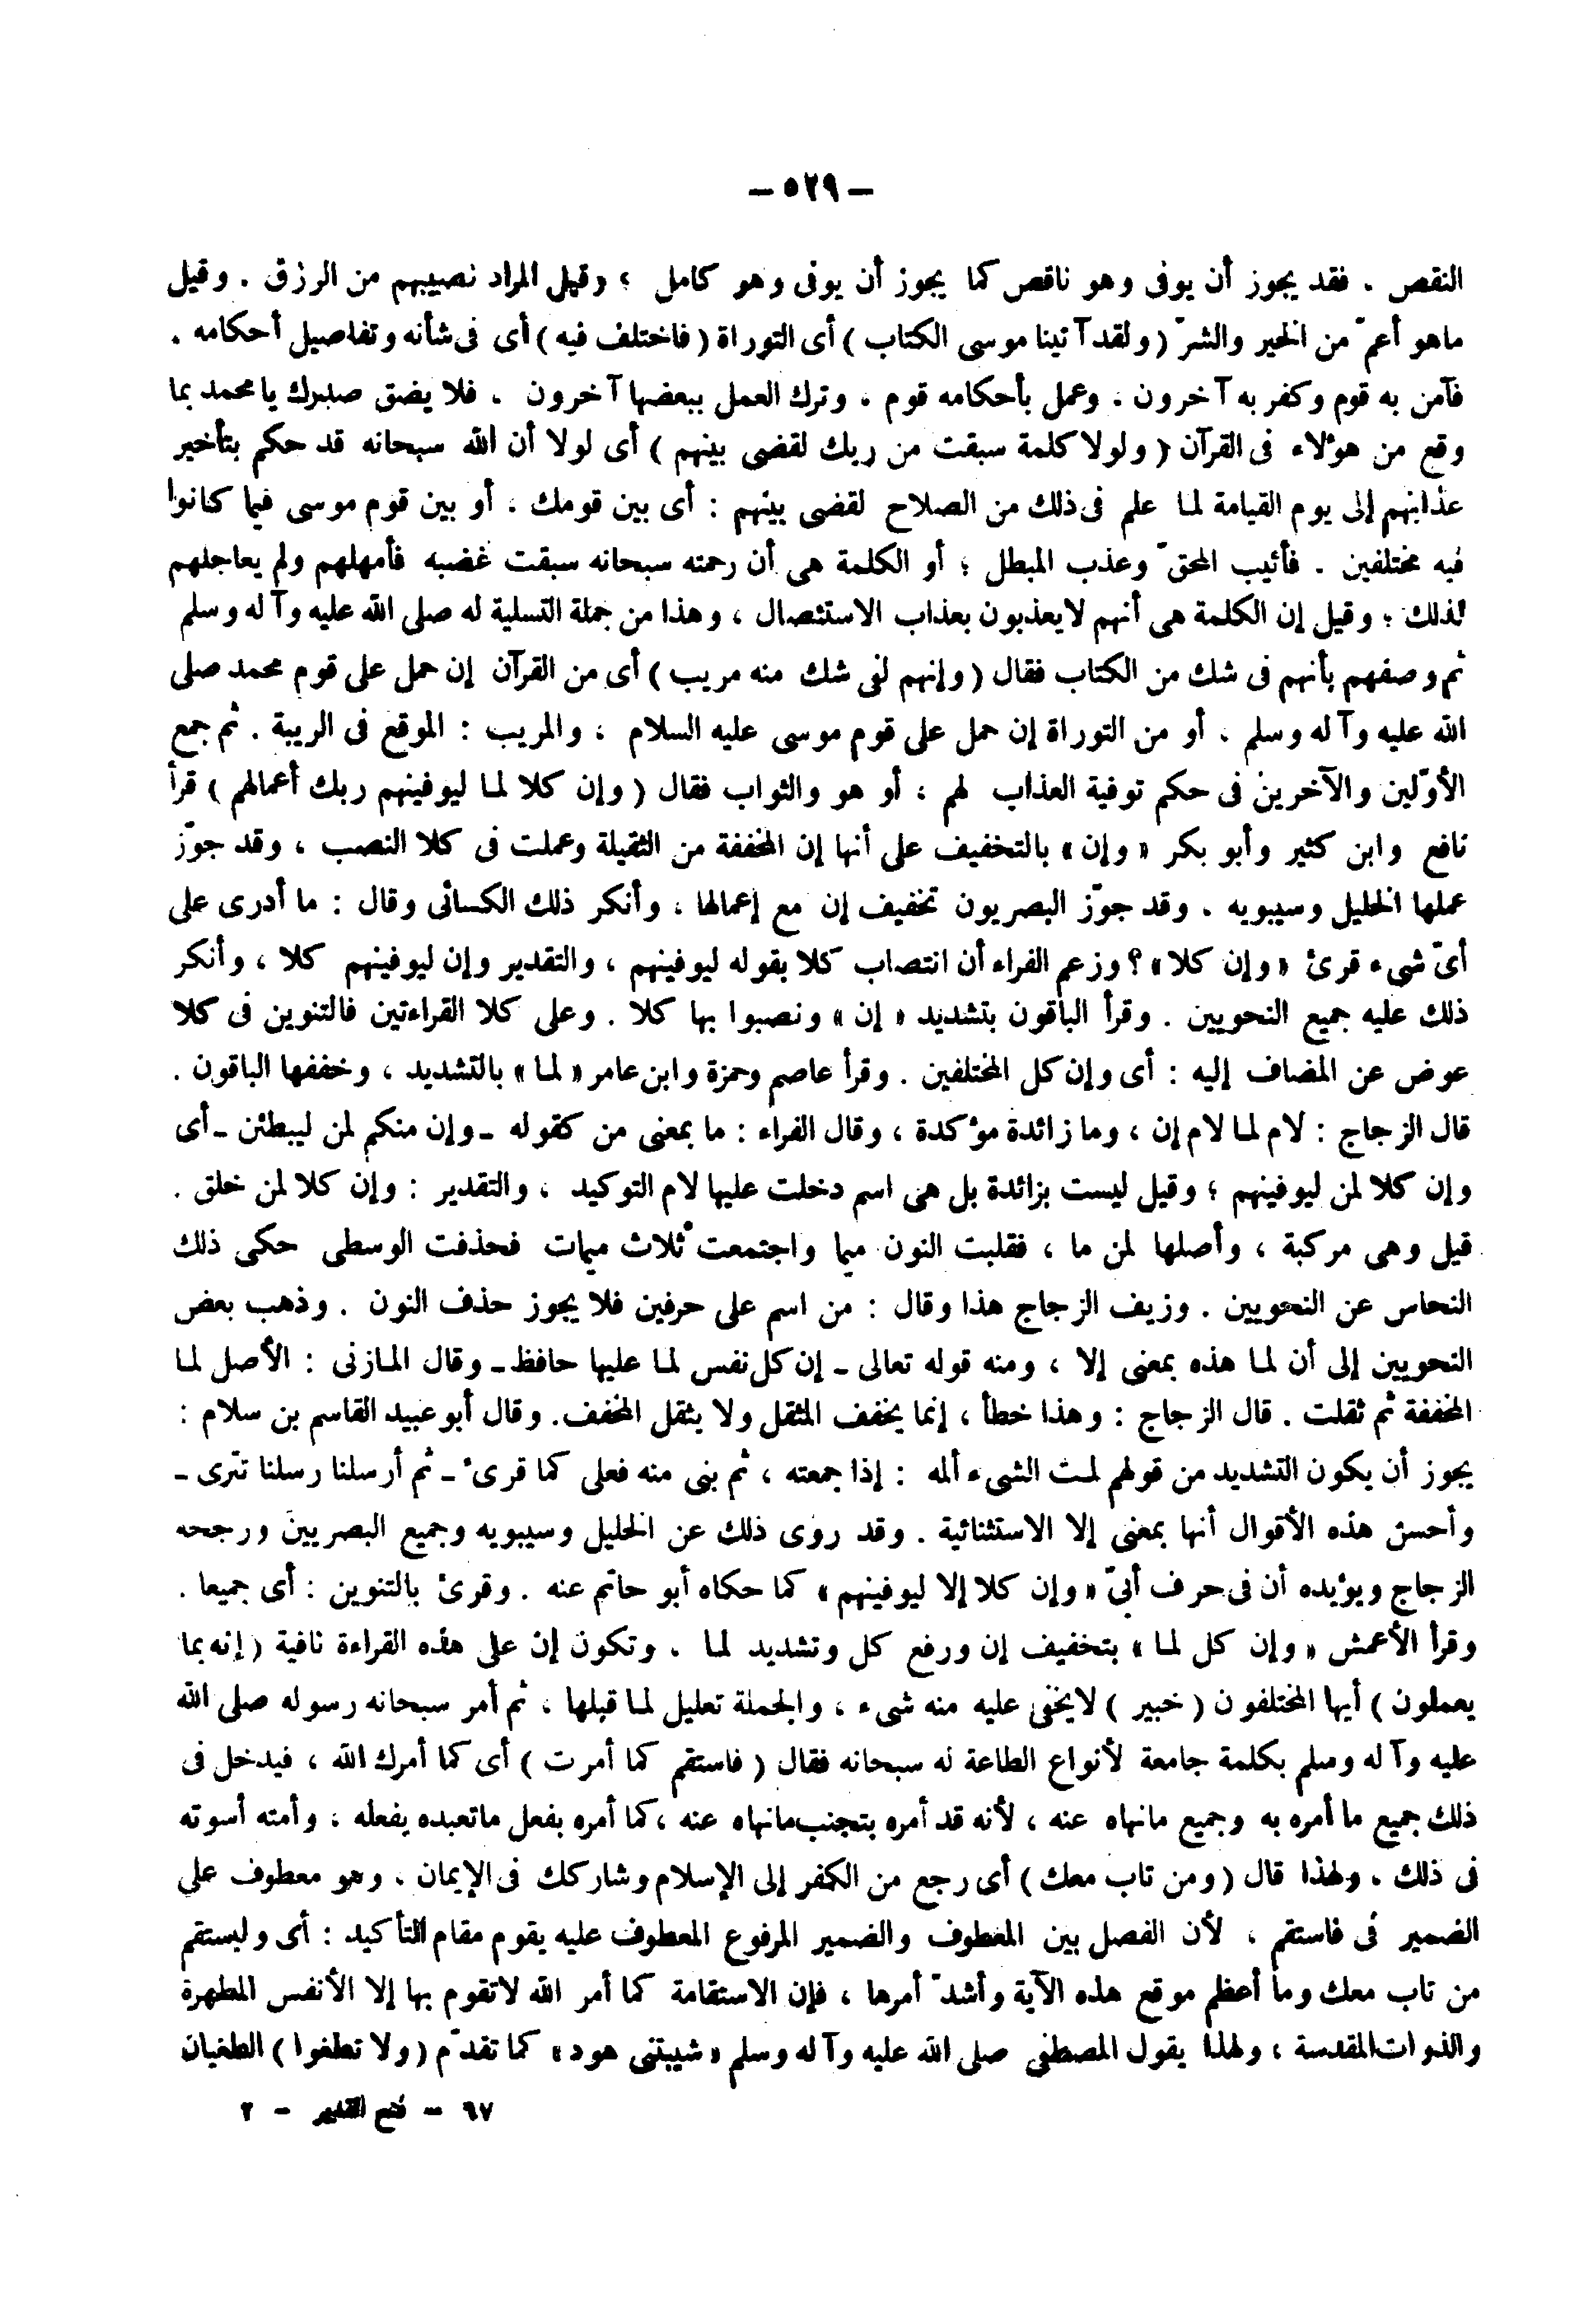 – ٥٢٩ –
النقص . فقد يجوز أن يوفى وهو ناقص كما يجوز أن يوفى وهو كامل ؛ وقيل المراد نصيبهم من الرزق . وقيل
ماهو أعمّ من الخير والشرّ ( ولقد آتينا موسى الكتاب ) أى التوراة ( فاختلف فيه ) أى فى شأنه وتفاصيل أحكامه .
فآمن به قوم وكفر به آخرون ، وعمل بأحكامه قوم ، وترك العمل ببعضها آخرون ، فلا يضق صدرك يا محمد بما
وقع من هؤلاء فى القرآن ( ولولا كلمة سبقت من ربك لقضى بينهم ) أى لولا أن الله سبحانه قد حكم بتأخير
عذابهم إلى يوم القيامة لما علم فى ذلك من الصلاح لقضى بينهم : أى بين قومك ، أو بين قوم موسى فيما كانوا
فيه مختلفين . فأثيب المحقّ وعذب المبطل ؛ أو الكلمة هى أن رحمته سبحانه سبقت غضبه فأمهلهم ولم يعاجلهم
لذلك ؛ وقيل إن الكلمة هى أنهم لايعذبون بعذاب الاستئصال ، وهذا من جملة التسلية له صلى الله عليه وآله وسلم
ثم وصفهم بأنهم فى شك من الكتاب فقال ( وإنهم لفى شك منه مريب ) أى من القرآن إن حمل على قوم محمد صلى
الله عليه وآله وسلم ، أو من التوراة إن حمل على قوم موسى عليه السلام ، والمريب : الموقع فى الريبة . ثم جمع
الأوّلين والآخرين فى حكم توفية العذاب لهم ، أو هو والثواب فقال ( وإن كلا لما ليوفينهم ربك أعمالهم ) قرأ
نافع وابن كثير وأبو بكر « وإن » بالتخفيف على أنها إن المخففة من الثقيلة وعملت فى كلا النصب ، وقد جوّز
عملها الخليل وسيبويه . وقد جوّز البصريون تخفيف إن مع إعمالها ، وأنكر ذلك الكسائى وقال : ما أدرى على
أىّ شىء قرئ « وإن كلا » ؟ وزعم الفراء أن انتصاب كلا بقوله ليوفينهم ، والتقدير وإن ليوفينهم كلا ، وأنكر
ذلك عليه جميع النحويين . وقرأ الباقون بتشديد « إن » ونصبوا بها كلا . وعلى كلا القراءتين فالتنوين فى كلا
عوض عن المضاف إليه : أى وإن كل المختلفين . وقرأ عاصم وحمزة وابن عامر « لما » بالتشديد ، وخففها الباقون .
قال الزجاج : لام لما لام إن ، وما زائدة مؤكدة ، وقال الفراء : ما بمعنى من كقوله ـ وإن منكم لمن ليبطئن ـ أى
وإن كلا لمن ليوفينهم ؛ وقيل ليست بزائدة بل هى اسم دخلت عليها لام التوكيد ، والتقدير : وإن كلا لمن خلق .
قيل وهى مركبة ، وأصلها لمن ما ، فقلبت النون ميما واجتمعت ثلاث ميمات فحذفت الوسطى حكى ذلك
النحاس عن النحويين . وزيف الزجاج هذا وقال : من اسم على حرفين فلا يجوز حذف النون . وذهب بعض
النحويين إلى أن لما هذه بمعنى إلا ، ومنه قوله تعالى ـ إن كل نفس لما عليها حافظ ـ وقال المازنى : الأصل لما
المخففة ثم ثقلت . قال الزجاج : وهذا خطأ ، إنما يخفف المثقل ولا يثقل المخفف. وقال أبو عبيد القاسم بن سلام :
يجوز أن يكون التشديد من قولهم لمت الشىء ألمه : إذا جمعته ، ثم بنى منه فعلى كما قرىء ـ ثم أرسلنا رسلنا تترى ـ
وأحسن هذه الأقوال أنها بمعنى إلا الاستثنائية . وقد روى ذلك عن الخليل وسيبويه وجميع البصريين ورجحه
الزجاج ويؤيده أن فى حرف أبىّ « وإن كلا إلا ليوفينهم » كما حكاه أبو حاتم عنه . وقرئ بالتنوين : أى جميعا .
وقرأ الأعمش « وإن كل لما » بتخفيف إن ورفع كل وتشديد لما ، وتكون إن على هذه القراءة نافية ( إنه بما
يعملون ) أيها المختلفون ( خبير ) لايخفى عليه منه شىء ، والجملة تعليل لما قبلها ، ثم أمر سبحانه رسوله صلى الله
عليه وآله وسلم بكلمة جامعة لأنواع الطاعة له سبحانه فقال ( فاستقم كما أمرت ) أى كما أمرك الله ، فيدخل فى
ذلك جميع ما أمره به وجميع مانهاه عنه ، لأنه قد أمره بتجنب مانهاه عنه ، كما أمره بفعل ماتعبده بفعله ، وأمته أسوته
فى ذلك ، ولهذا قال ( ومن تاب معك ) أى رجع من الكفر إلى الإسلام وشاركك فى الإيمان ، وهو معطوف على
الضمير فى فاستقم ، لأن الفصل بين المعطوف والضمير المرفوع المعطوف عليه يقوم مقام التأكيد : أى وليستقم
من تاب معك وما أعظم موقع هذه الآية وأشدّ أمرها ، فإن الاستقامة كما أمر الله لاتقوم بها إلا الأنفس المطهرة
والذوات المقدسة ، ولهذا يقول المصطفى صلى الله عليه وآله وسلم « شيبتنى هود » كما تقدّم ( ولا تطغوا ) الطغيان
٦٧ – فتح القدير – ٢